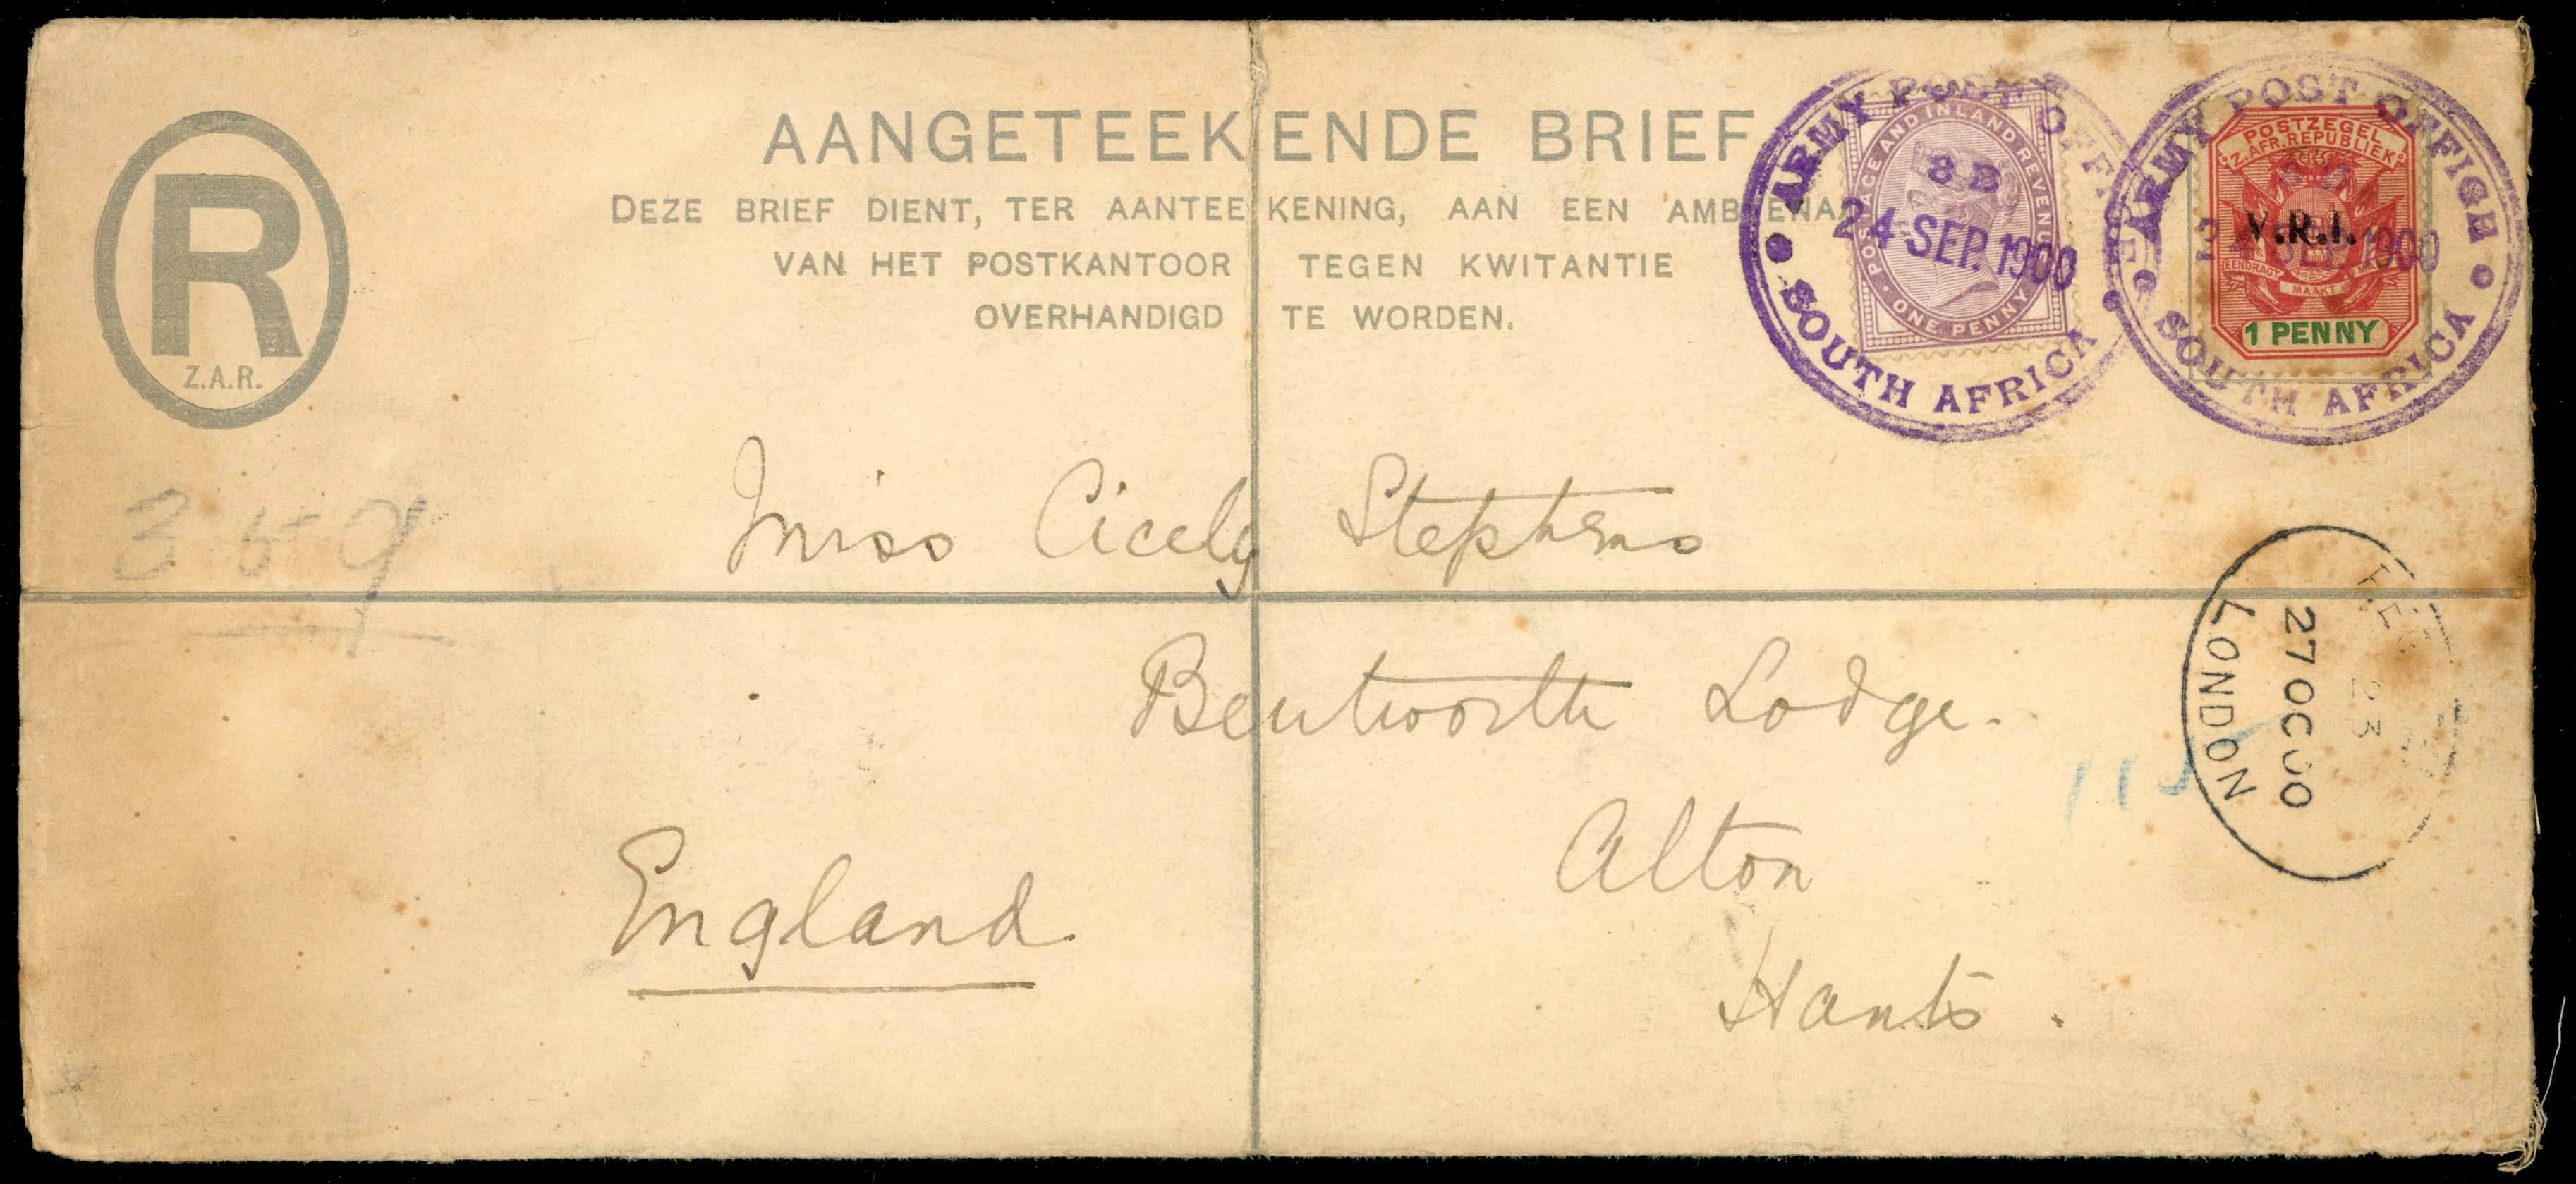 R
Z.A.R.
AANGETEEKENDE BRIEF
DEZE BRIEF DIENT, TER AANTEEKENING, AAN EEN AMBTENAAR
VAN HET POSTKANTOOR TEGEN KWITANTIE
OVERHANDIGD TE WORDEN.
ARMY POST OFFICE
8 B
24 SEP. 1900
SOUTH AFRICA
POSTAGE AND INLAND REVENUE
ONE PENNY
ARMY POST OFFICE
24 SEP. 1900
SOUTH AFRICA
POSTZEGEL
Z.AFR.REPUBLIEK
V.R.I.
EENDRAGT
MAAKT
1 PENNY
359
Miss Cicely Stephens
Bentworth Lodge.
Alton
Hants.
England
27 OC 00
LONDON